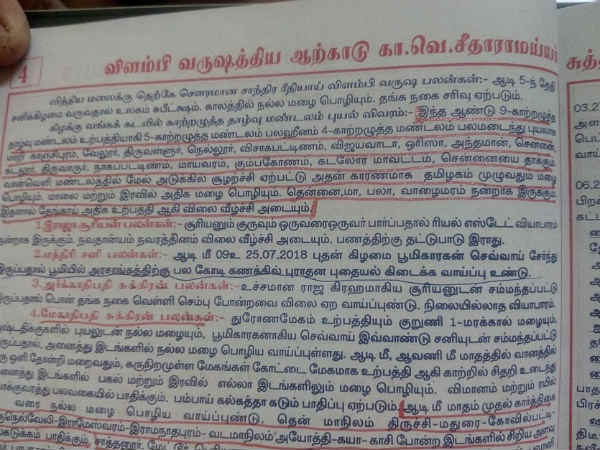 4
விளம்பி வருஷத்திய ஆற்காடு கா.வெ.சீதாராமய்யர்
சுத்த
விந்திய மலைக்கு தெற்கே சௌரமான சாந்திர ரீதியாய் விளம்பி வருஷ பலன்கள்:- ஆடி 5-ந் தேதி
சனிக்கிழமை வருவதால் உலகம் சுபீட்சம். காலத்தில் நல்ல மழை பொழியும். தங்க நகை சரிவு ஏற்படும்.
கிழக்கு வங்கக் கடலில் காற்றழுத்த தாழ்வு மண்டலம் புயல் விவரம்:- இந்த ஆண்டு 9-காற்றழுத்த
தாழ்வு மண்டலம் உற்பத்தியாகி 5-காற்றழுத்த மண்டலம் பலஹீனம் 4-காற்றழுத்த மண்டலம் பலமடைந்து புயலாக
மாறி காஞ்சிபுரம், வேலூர், திருவள்ளூர், நெல்லூர், விசாகபட்டிணம், விஜயவாடா, ஒரிஸா, அந்தமான், சென்னை,
கடலூர், திருவாரூர், நாகபட்டிணம், மாயவரம், கும்பகோணம், கடலோர மாவட்டம், சென்னையை தாக்கும்
வானவெளி மண்டலத்தில் மேல் அடுக்கில் சூழற்ச்சி ஏற்பட்டு அதன் காரணமாக தமிழகம் முழுவதும் மழை
பெழியும், மாலை மற்றும் இரவில் அதிக மழை பொழியும். தென்னை,மா, பலா, வாழைமரம் நன்றாக இருக்கும்.
இதனால் தேங்காய் அதிக உற்பத்தி ஆகி விலை வீழ்ச்சி அடையும்.
1.இராஜா சூரியன் பலன்கள்:- சூரியனும் குருவும் ஒருவரைஒருவர் பார்ப்பதால் ரியல் எஸ்டேட் வியாபாரம்
நன்றாக இருக்கும். நவதானியம் நவரத்தினம் விலை வீழ்ச்சி அடையும். பணத்திற்கு தட்டுபாடு இராது.
2.மந்திரி சனி பலன்கள்:- ஆடி மீ 09உ 25.07.2018 புதன் கிழமை பூமிகாரகன் செவ்வாய் சேர்ந்து
இருப்பதால் பூமியில் அரசாங்கத்திற்கு பல கோடி கணக்கில் புராதன புதையல் கிடைக்க வாய்ப்பு உண்டு.
3.அர்க்காதிபதி சுக்கிரன் பலன்கள்:- உச்சமான ராஜ கிரஹமாகிய சூரியனுடன் சம்மந்தப்பட்டு
இருப்பதால் பொன் தங்க நகை வெள்ளி செம்பு போன்றவை விலை ஏற வாய்ப்புண்டு. நிலையில்லாத வியாபாரம்.
4.மேகாதிபதி சுக்கிரன் பலன்கள்:- துரோணமேகம் உற்பத்தியும் குறுணி 1-மரக்கால் மழையும்,
திக்குகளில் புயலுடன் நல்ல மழையும், பூமிகாரகனாகிய செவ்வாய் இவ்வாண்டு சனியுடன் சம்மந்தப்பட்டு
இருப்பதால், அனைத்து இடங்களில் நல்ல மழை பொழிய வாய்ப்புள்ளது. ஆடி மீ, ஆவணி மீ மாதத்தில் வானத்தில்
ஒளி தோன்றி மறைவதும், கருநிறமுள்ள மேகங்கள் கோட்டை மேகமாக உற்பத்தி ஆகி காற்றில் சிதறி உடைந்து
இடங்களில் பகல் மற்றும் இரவில் எல்லா இடங்களிலும் மழை பொழியும். விமானம் மற்றும் ரயில்
போக்குவரத்து பலவகையில் பாதிக்கும். பம்பாய் கல்கத்தா கடும் பாதிப்பு ஏற்படும். ஆடி மீ மாதம் முதல் கார்த்திகை
வரை நல்ல மழை பொழிய வாய்ப்புண்டு. தென் மாநிலம் திருச்சி-மதுரை-கோவில்பட்டி-
திருநெல்வேலி-இராமேஸ்வரம்-இராமநாதபுரம்- வடமாநிலம் அயோத்தி-கயா-காசி போன்ற இடங்களில் சிறிய அளவு
பாதிக்கும். சாத்தனூர்,
03.2
06.2